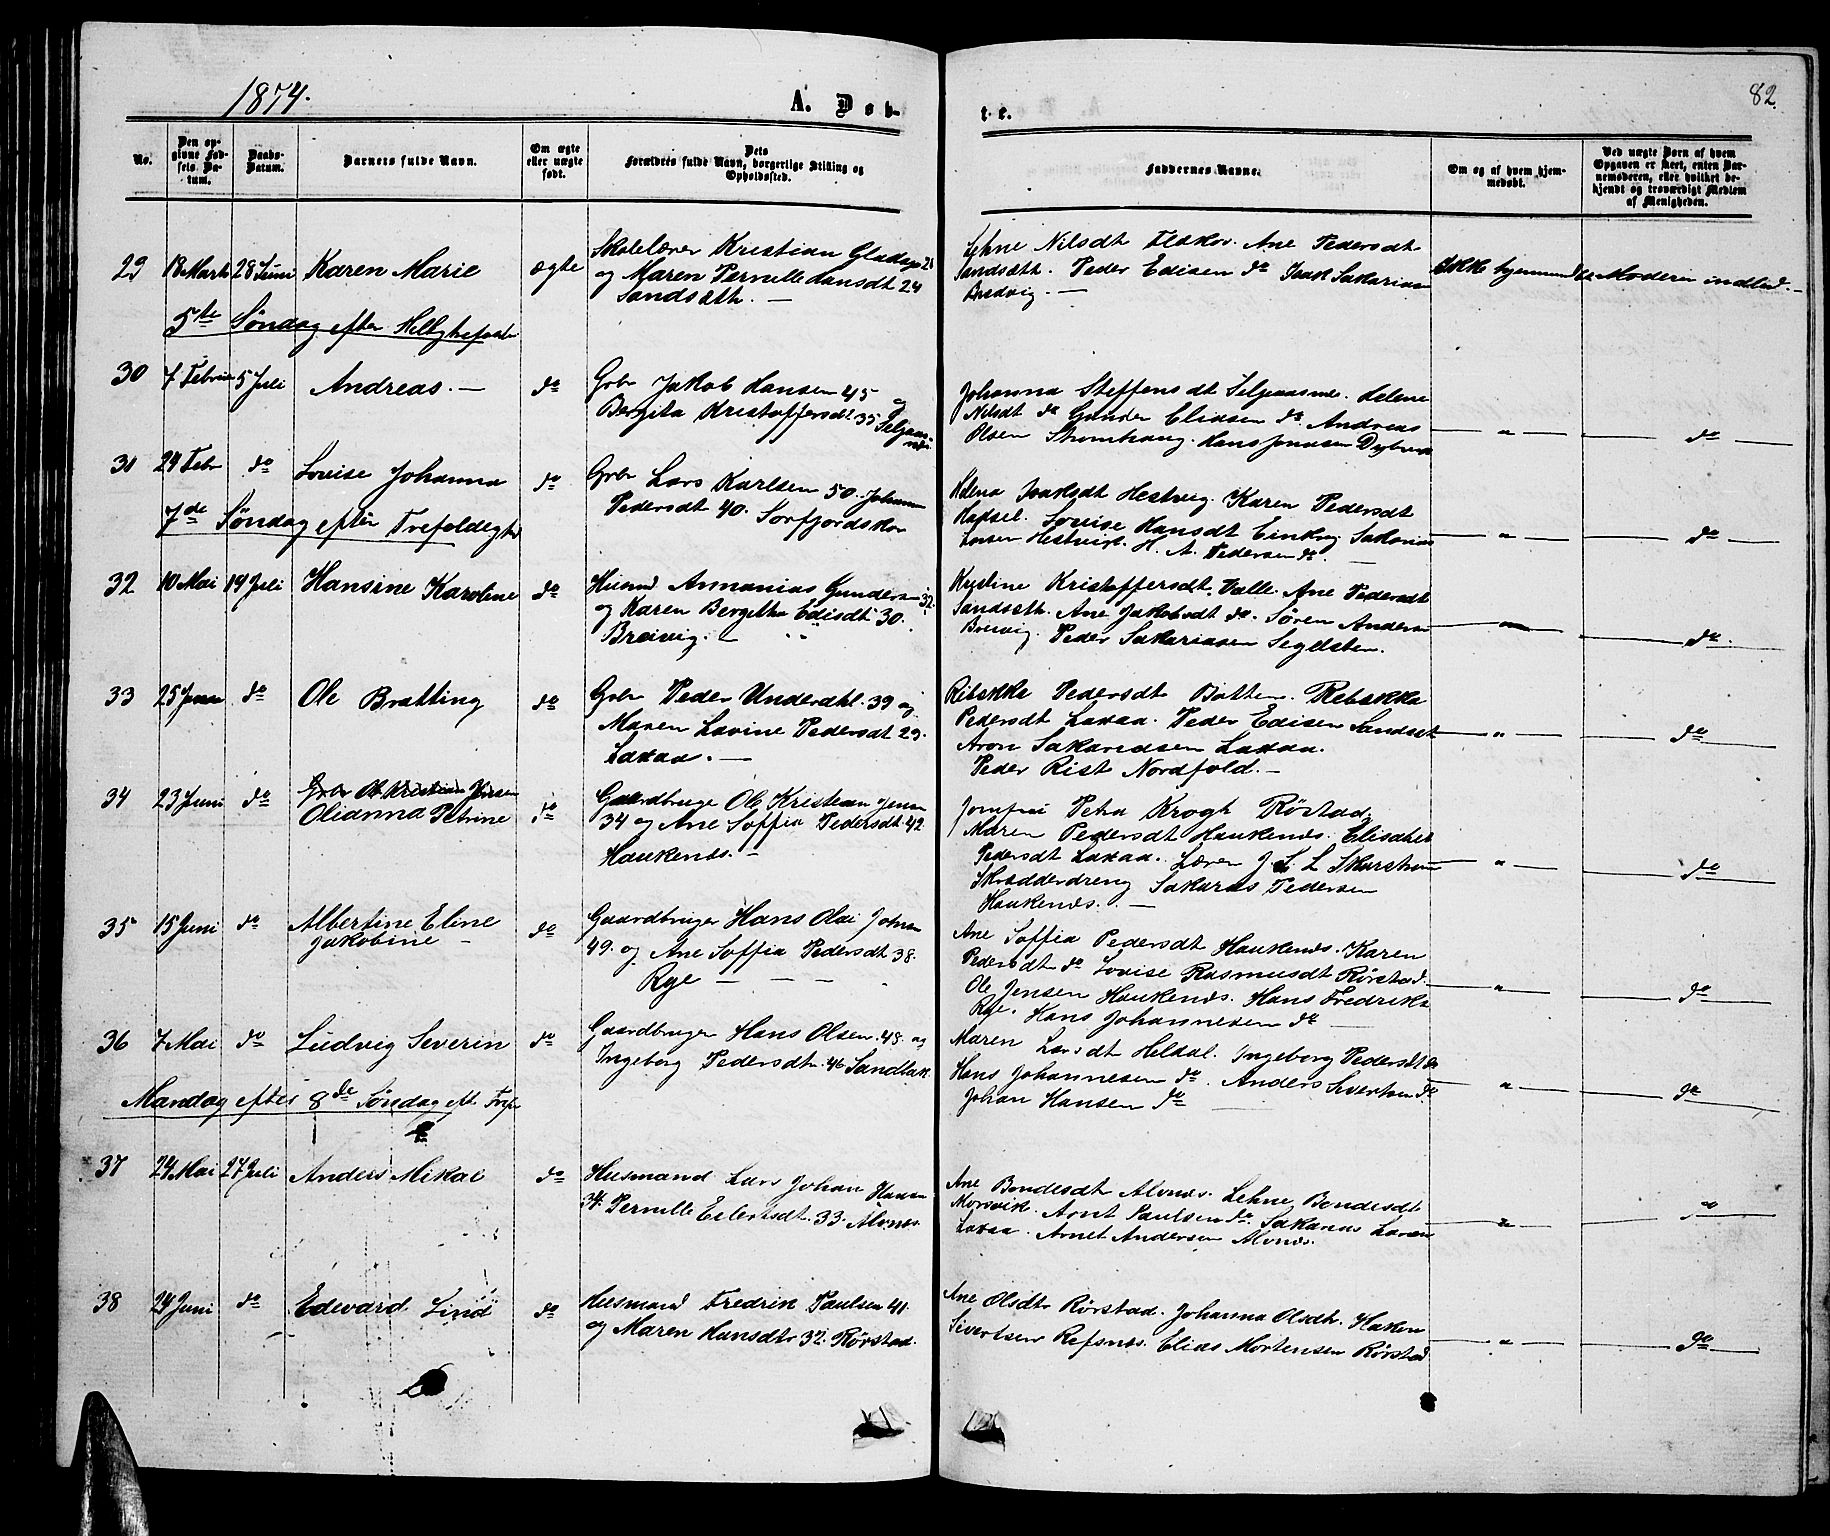 1874.
A. Døb-
t. e.
82.
No.
Den opgivne Fødsels-Datum.
Daabs-Datum.
Barnets fulde Navn.
Om ægte eller uægte født.
Dets Forældres fulde Navn, borgerlige Stilling og Opholdssted.
Faddernes Navne.
Om og af hvem hjemmedøbt.
Ved uægte Børn af hvem Opgaven er skeet, enten Barnemoderen, eller hvilket bekjendt og troværdigt Medlem af Menigheden.
29 18 Marts 28 Juni Karen Marie ægte
Skolelærer Kristian
og Maren Pernille Hansdt 24
Sandsæth. —
Lehne Nilsdt Ane Pedersdt
Sandsæth. Peder Edisen do Isak Sakarias
Bredvig. —
Ikke hjemmed Moderen indled. —
5te Søndag efter
30 7 Febr 5 Juli Andreas. — do
Grbr Jakob Hansen 45 og
Bergita Kristoffersdt 35
Johanna Steffensdt Helene
Nilsdt do Gunder Eliasen do Andreas
Olsen Strømhaug. Hans Jonasen
— " — do —
31 24 Febr do Lovise Johanna do
Grbr Lars Karlsen 50. Johanna
Pedersdt 40. Sørfjordskar
Helena Isaksdt Hestvig. Karen Pedersdt
Lovise Hansdt Sakarias
Larsen Hestvig. H. A. Pedersen do —
— " — do —
7de Søndag efter Trefoldighd
32 10 Mai 19 Juli Hansine Karoline do
Husmd Annanias Gunders 32
og Karen Bergitha Edisdt 30.
Breivig. —
Kristine Kristoffersdt. Valle. Ane Pedersdt
Sandsæth. Ane Jakobsdt do. Søren Anders
Breivig. Peder Sakariasen Segelsten.
— " — do. —
33 25 Juni do Ole Bratting do
Grbr Peder Underdhl. 39 og
Maren Lovine Pedersdt 29.
Laxaa. —
Rebekke Pedersdt Botten. Rebekka
Pedersdt Laxaa. Peder Edisen Sandset
Aron Sakariasen Laxaa.
Peder Rist Nordfold. —
— " — do —
34 23 Juni do Grbr Ol Kristian Jensen
Olianna Petrine do
Gaardbruger Ole Kristian Jensen
34 og Ane Soffia Pedersdt. 42
Haukenes. —
Jomfru Petra Krogh Rørstad,
Maren Pedersdt Haukenes. Elisabet
Pedersdt Laxaa. Lærer J. L. L Skarstrøm
Skrædderdreng Sakarias Pedersen
Haukenes. —
— " — do —
35 15 Juni do Albertine Eline
Jakobine — do
Gaardbruger Hans Olai Johns
49. og Ane Soffia Pedersdt 38.
Rye — — —
Ane Soffia Pedersdt Haukenes. Karen
Pedersdt do Lovise Rasmusdt Rørstad.
Ole Jensen Haukenes. Hans Fredriks
Rye. Hans Johannesen do —
— " — do —
36 7 Mai do Ludvig Severin do
Gaardbruger Hans Olsen. 48. og
Ingeborg Pedersdt. 46 Sandbak.
Maren Larsdt Heldal. Ingeborg Pedersdt do
Hans Johannesen do. Anders Sivertsen do
Johan Hansen do —
— " — do —
Mandag efter 8de Søndag eft. Tref
37 24 Mai 27 Juli Anders Mikal do
Husmand Lars Johan Hansen
34. Pernille Eilertsdt. 33. Alvnes.
Ane Bendesdt Alvnes. Lehne Bendesdt
Mørsvik. Arnt Paulsen do. Sakarias Larsen
Laxaa. Arnet Andersen Alvnes.
— " — " —
38 24 Juni do Edevard Lind do
Husmand Fredrik Paulsen 41.
og Maren Hansdtr 32. Rørstad.
Ane Olsdtr Rørstad. Johanna Olsdtr. Haken
Sivertsen Refsnes. Elias Mortensen Rørstad
— " — do —